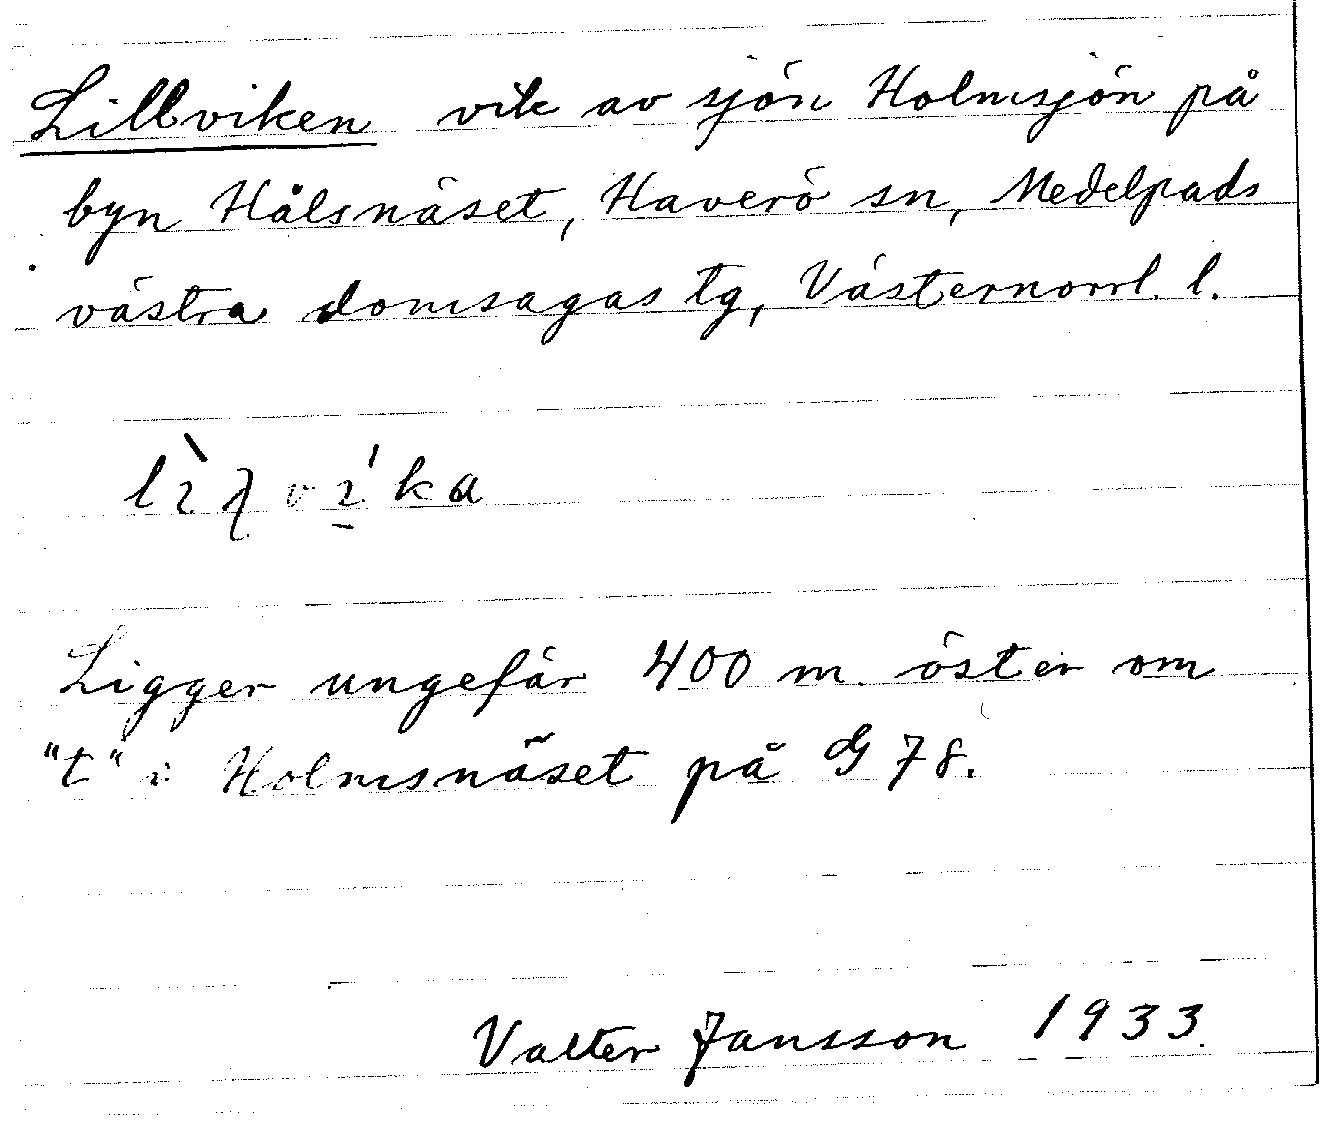 Lillviken vik av sjön Holmsjön på
byn Hålsnäset, Haverö sn, Medelpads
västra domsagas tg, Västernorrl. l.
Ligger ungefär 400 m öster om
"t" i Holmsnäset på G 78.
Valter Jansson 1933.